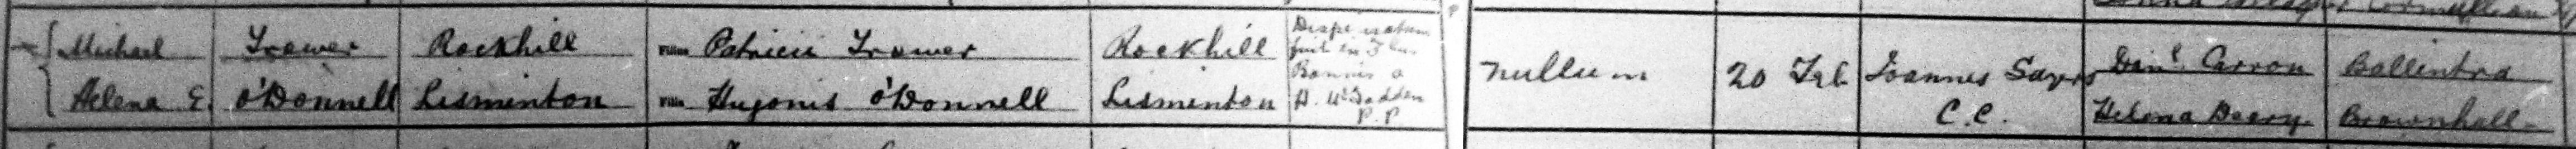 Michael Trower Rockhill Filius Patricii Trower Rockhill
Helena E. O'Donnell Lisminton Filia Hugonis O'Donnell Lisminton
Dispensatum
fuit in
Bannis a
H. McFadden
P.P.
nullum 20 Feb Joannes
C.C.
Danl. Carron Ballintra
Helena Deery Brownhall